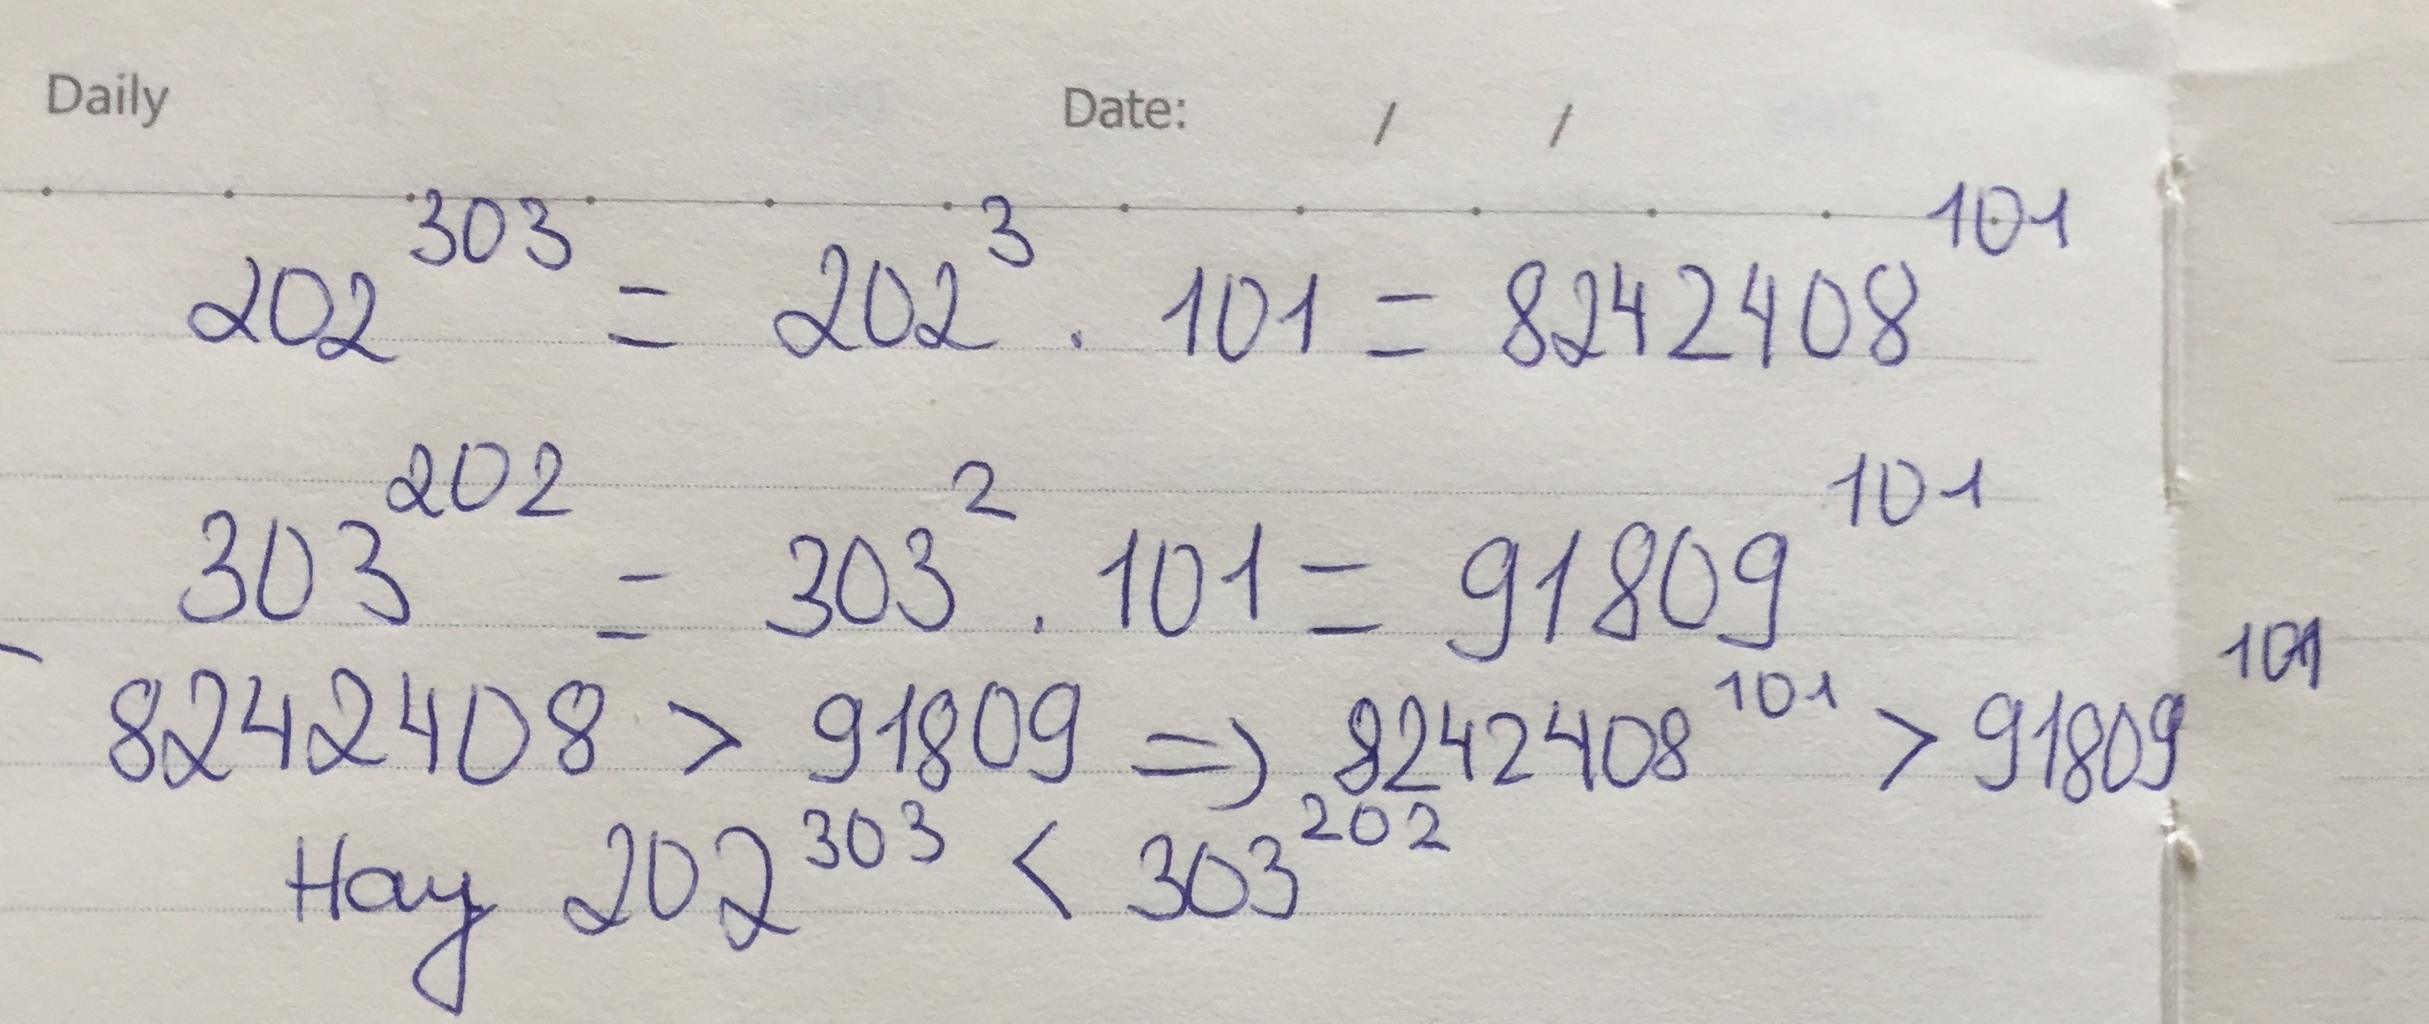 Daily Date: / /
202³⁰³ = 202³ . 101 = 8242408¹⁰¹
303²⁰² = 303² . 101 = 91809¹⁰¹
8242408 > 91809 => 8242408¹⁰¹ > 91809¹⁰¹
Hay 202³⁰³ < 303²⁰²